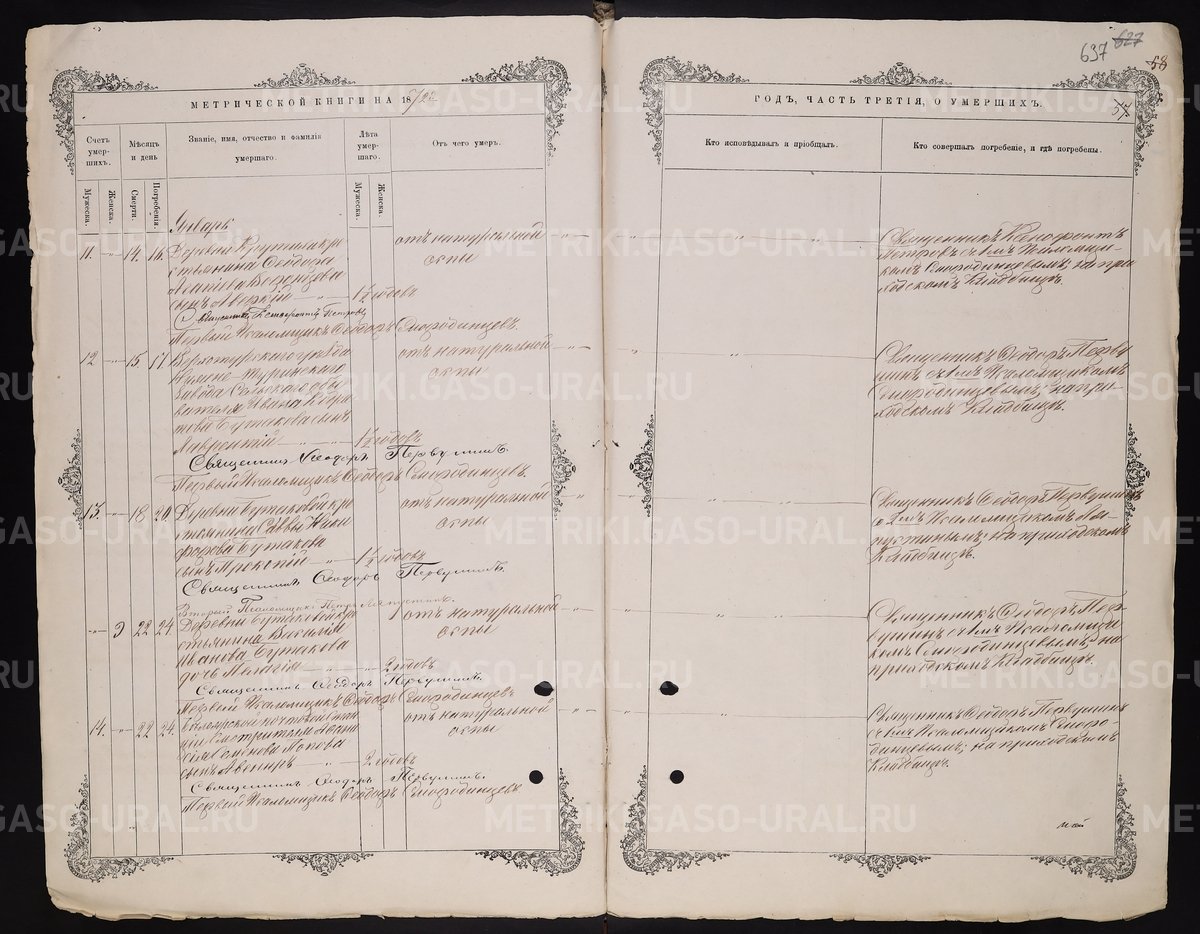 637 627
58
57
МЕТРИЧЕСКОЙ КНИГИ НА 18
ГОДЪ, ЧАСТЬ ТРЕТІЯ, О УМЕРШИХЪ.
Счетъ умер-шихъ.
Мужеска.
Женска.
Мѣсяцъ и день
Смерти.
Погребенія.
Званіе, имя, отчество и фамилія умершаго.
Лѣта умер-шаго.
Мужеска.
Женска.
Отъ чего умеръ.
Кто исповѣдывалъ и пріобщалъ.
Кто совершалъ погребеніе, и гдѣ погребены.
Январь
11. 14. 16. Деревни кре
стьянина Ѳедора
сынъ Аверкій 1½ годовъ
отъ натуральной
оспы
Священникъ Ксенофонтъ
Петровъ съ Псаломщи-
комъ Смородинцевымъ, на при
ходскомъ кладбищѣ.
Священникъ Ксенофонтъ Петровъ
Первый Псаломщикъ Ѳеодоръ Смородинцевъ.
12 15. 17. Верхотурскаго уѣзда
Туринскаго
завода Сельскаго обы
вателя Ивана
Бутакова сынъ
Лаврентій 1½ годовъ
отъ натуральной
оспы
Священникъ Ѳеодоръ Перву
шинъ съ Псаломщикомъ
Смородинцевымъ, на при
ходскомъ кладбищѣ.
Священникъ Ѳеодоръ Первушинъ.
Первый Псаломщикъ Ѳеодоръ Смородинцевъ.
13. 18. 20. Деревни Бутаковой кре
стьянина Саввы Ники
форова Бутакова
сынъ 1½ годовъ
отъ натуральной
оспы
Священникъ Ѳеодоръ Первушинъ
съ Псаломщикомъ Ла-
пустинымъ, на приходскомъ
кладбищѣ.
Священникъ Ѳеодоръ Первушинъ.
Второй Псаломщикъ Петръ Лапустинъ.
9 22 24. Деревни Бутаковой кре
стьянина Василія
Иванова Бутакова
дочь Пелагія 2 годовъ
отъ натуральной
оспы
Священникъ Ѳеодоръ Пер-
вушинъ съ Псаломщи
комъ Смородинцевымъ, на
приходскомъ кладбищѣ.
Священникъ Ѳеодоръ Первушинъ.
Первый Псаломщикъ Ѳеодоръ Смородинцевъ
14. 22 24. почтовой стан
ціи Смотрителя
Попова
сынъ Авениръ 2 годовъ
отъ натуральной
оспы
Священникъ Ѳеодоръ Первушинъ
съ Псаломщикомъ Сморо-
динцевымъ, на приходскомъ
кладбищѣ.
Священникъ Ѳеодоръ Первушинъ.
Первый Псаломщикъ Ѳеодоръ Смородинцевъ
METRIKI.GASO-URAL.RU